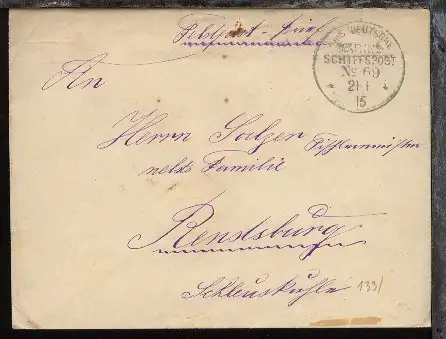 Feldpost-Brief
KAIS. DEUTSCHE
MARINE-
SCHIFFSPOST
No 69
* 21 1 *
15
An
Herrn Salzer Fischermeister
nebst Familie
Rendsburg
Schleuskuhle 133/